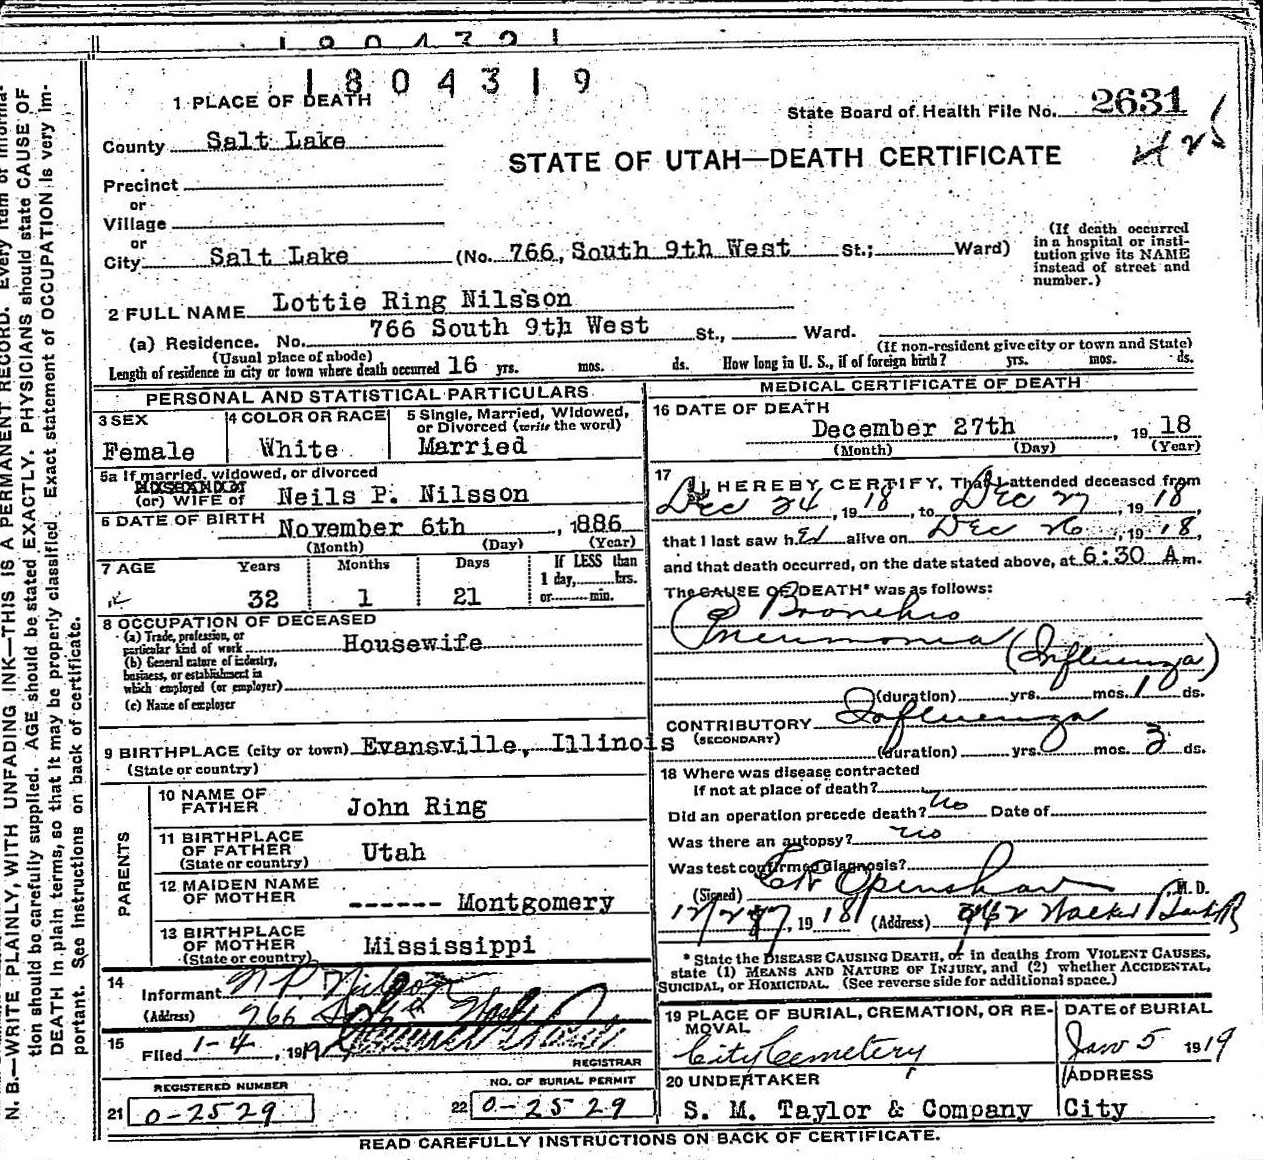 1804319
1 PLACE OF DEATH
State Board of Health File No. 2631
County Salt Lake
STATE OF UTAH—DEATH CERTIFICATE
Precinct
or
Village
or
City Salt Lake (No. 766, South 9th West St.; Ward)
(If death occurred
in a hospital or insti-
tution give its NAME
instead of street and
number.)
2 FULL NAME Lottie Ring Nilsson
(a) Residence. No. 766 South 9th West St., Ward.
(Usual place of abode) (If non-resident give city or town and State)
Length of residence in city or town where death occurred 16 yrs. mos. ds. How long in U. S., if of foreign birth? yrs. mos. ds.
PERSONAL AND STATISTICAL PARTICULARS
3 SEX
Female
4 COLOR OR RACE
White
5 Single, Married, Widowed,
or Divorced (write the word)
Married
5a If married, widowed, or divorced
HUSBAND of
(or) WIFE of Neils P. Nilsson
6 DATE OF BIRTH November 6th, 1886
(Month) (Day) (Year)
7 AGE Years Months Days If LESS than
1 day, hrs.
32 1 21 or min.
8 OCCUPATION OF DECEASED
(a) Trade, profession, or
particular kind of work Housewife
(b) General nature of industry,
business, or establishment in
which employed (or employer)
(c) Name of employer
9 BIRTHPLACE (city or town) Evansville, Illinois
(State or country)
PARENTS
10 NAME OF
FATHER John Ring
11 BIRTHPLACE
OF FATHER Utah
(State or country)
12 MAIDEN NAME
OF MOTHER ------ Montgomery
13 BIRTHPLACE
OF MOTHER Mississippi
(State or country)
14
Informant N. P. Nilsson
(Address) 766 So 9th West
15
Filed 1-4, 1919
REGISTRAR
REGISTERED NUMBER
21 0-2529
NO. OF BURIAL PERMIT
22 0-2529
MEDICAL CERTIFICATE OF DEATH
16 DATE OF DEATH
December 27th, 1918
(Month) (Day) (Year)
17 I HEREBY CERTIFY, That I attended deceased from
Dec 24, 1918, to Dec 27, 1918
that I last saw her alive on Dec 26, 1918,
and that death occurred, on the date stated above, at 6:30 A m.
The CAUSE OF DEATH* was as follows:
Broncho
Pneumonia (Influenza)
(duration) yrs. mos. 10 ds.
CONTRIBUTORY Influenza
(SECONDARY)
(duration) yrs. mos. 3 ds.
18 Where was disease contracted
if not at place of death?
Did an operation precede death? no Date of
Was there an autopsy? no
Was test confirmed diagnosis?
(Signed) Openshaw, M. D.
12/27, 1918 (Address) Walker Bank B
* State the DISEASE CAUSING DEATH, or in deaths from VIOLENT CAUSES,
state (1) MEANS AND NATURE OF INJURY, and (2) whether ACCIDENTAL,
SUICIDAL, or HOMICIDAL. (See reverse side for additional space.)
19 PLACE OF BURIAL, CREMATION, OR RE-
MOVAL
City Cemetery
DATE of BURIAL
Jan 5 1919
20 UNDERTAKER
S. M. Taylor & Company
ADDRESS
City
READ CAREFULLY INSTRUCTIONS ON BACK OF CERTIFICATE.
N. B.—WRITE PLAINLY, WITH UNFADING INK—THIS IS A PERMANENT RECORD. Every item of informa-
tion should be carefully supplied. AGE should be stated EXACTLY. PHYSICIANS should state CAUSE OF
DEATH in plain terms, so that it may be properly classified. Exact statement of OCCUPATION is very im-
portant. See instructions on back of certificate.